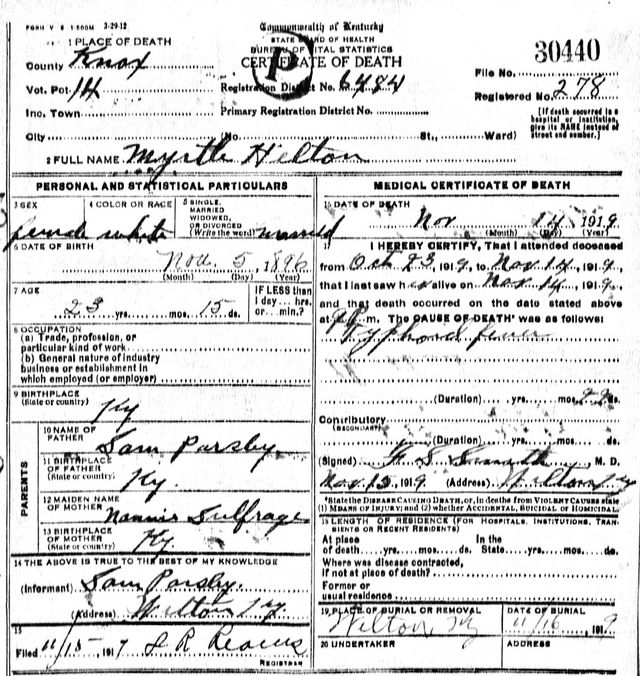 FORM V S 1 500M 3-29-12
Commonwealth of Kentucky
STATE BOARD OF HEALTH
BUREAU OF VITAL STATISTICS
CERTIFICATE OF DEATH
P
1 PLACE OF DEATH
County Knox
Vot. Pct 14
Inc. Town
City
Registration District No. 6484
Primary Registration District No.
(No. St., Ward)
30440
File No.
Registered No. 278
[If death occurred in a
hospital or institution,
give its NAME instead of
street and number.]
2 FULL NAME Myrtle Hilton
PERSONAL AND STATISTICAL PARTICULARS
3 SEX
female
4 COLOR OR RACE
white
5 SINGLE,
MARRIED
WIDOWED,
OR DIVORCED
(Write the word) married
6 DATE OF BIRTH
Nov. 5, 1896
(Month) (Day) (Year)
7 AGE
23 yrs. mos. 15 ds.
IF LESS than
1 day... hrs.
or ... min.?
8 OCCUPATION
(a) Trade, profession, or
particular kind of work
(b) General nature of industry
business or establishment in
which employed (or employer)
9 BIRTHPLACE
(State or country)
Ky
PARENTS
10 NAME OF
FATHER
Sam Parsby
11 BIRTHPLACE
OF FATHER
(State or country)
Ky.
12 MAIDEN NAME
OF MOTHER
Nannie Sulfrage
13 BIRTHPLACE
OF MOTHER
(State or country)
Ky.
14 THE ABOVE IS TRUE TO THE BEST OF MY KNOWLEDGE
(Informant) Sam Parsby.
(Address) Wilton Ky.
15
Filed 11/15 - 1917
REGISTRAR
MEDICAL CERTIFICATE OF DEATH
16 DATE OF DEATH
Nov 14 1919
(Month) (Day) (Year)
17 I HEREBY CERTIFY, That I attended deceased
from Oct 23, 1919, to Nov 14, 1919,
that I last saw her alive on Nov 14, 1919,
and that death occurred on the date stated above
at m. The CAUSE OF DEATH* was as follows:
Typhoid fever
(Duration) yrs. mos. 22 ds.
Contributory
(SECONDARY)
(Duration) yrs. mos. ds.
(Signed) F. S. Smith, M. D.
Nov. 15, 1919 (Address) Wilton Ky
*State the DISEASE CAUSING DEATH, or, in deaths from VIOLENT CAUSES state
(1) MEANS OF INJURY; and (2) whether ACCIDENTAL, SUICIDAL or HOMICIDAL
18 LENGTH OF RESIDENCE (FOR HOSPITALS, INSTITUTIONS, TRANSIENTS OR RECENT RESIDENTS)
At place
of death yrs. mos. ds.
In the
State yrs. mos. ds.
Where was disease contracted,
if not at place of death?
Former or
usual residence
19 PLACE OF BURIAL OR REMOVAL
Wilton, Ky
DATE OF BURIAL
11/16, 1919
20 UNDERTAKER
ADDRESS